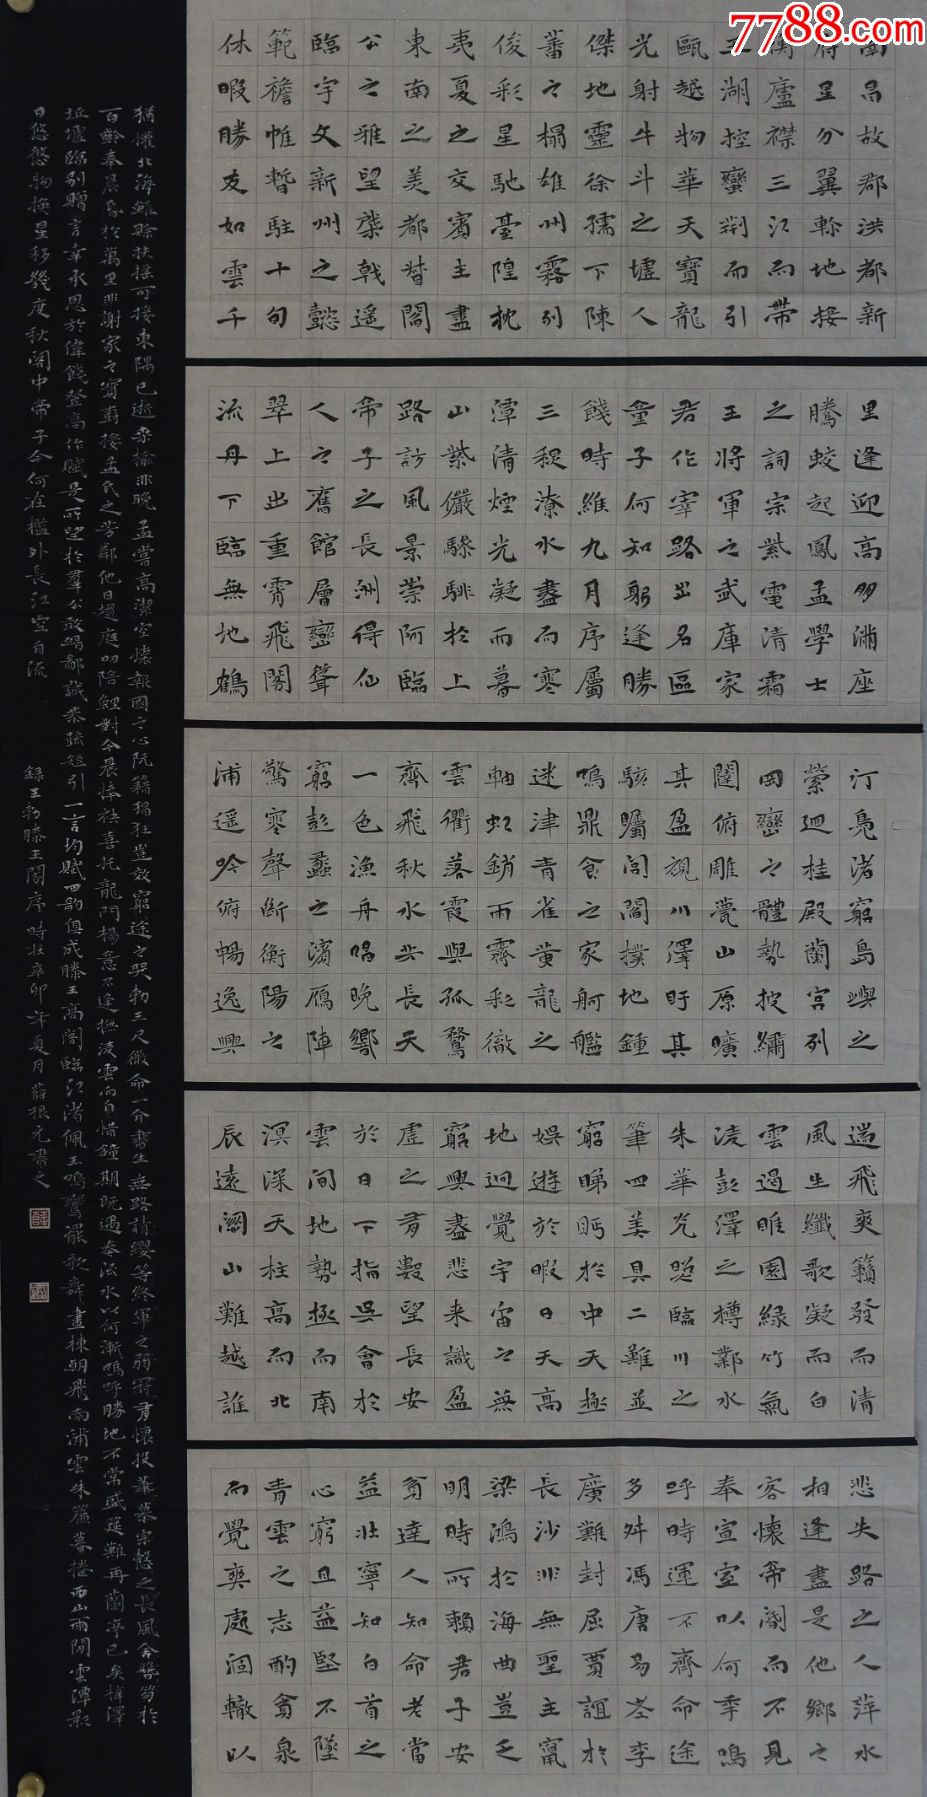 南昌故郡洪都新
府星分翼軫地接
衡廬襟三江而帶
五湖控蠻荆而引
甌越物華天寶龍
光射牛斗之墟人
傑地靈徐孺下陳
蕃之榻雄州霧列
俊彩星馳臺隍枕
夷夏之交賓主盡
東南之美都督閻
公之雅望棨戟遥
臨宇文新州之懿
範襜帷暫駐十旬
休暇勝友如雲千
里逢迎高朋滿座
騰蛟起鳳孟學士
之詞宗紫電清霜
王將軍之武庫家
君作宰路出名區
童子何知躬逢勝
餞時維九月序屬
三秋潦水盡而寒
潭清煙光凝而暮
山紫儼驂騑於上
路訪風景崇阿臨
帝子之長洲得仙
人之舊館層巒聳
翠上出重霄飛閣
流丹下臨無地鶴
汀鳧渚窮島嶼之
縈迴桂殿蘭宮列
岡巒之體勢披繡
闥俯雕甍山原曠
其盈視川澤盱其
駭矚閭閻撲地鍾
鳴鼎食之家舸艦
迷津青雀黃龍之
軸虹銷雨霽彩徹
雲衢落霞與孤鶩
齊飛秋水共長天
一色漁舟唱晚響
窮彭蠡之濱雁陣
驚寒聲斷衡陽之
浦遥吟俯暢逸興
遄飛爽籟發而清
風生纖歌凝而白
雲遏睢園綠竹氣
淩彭澤之樽鄴水
朱華光照臨川之
筆四美具二難並
窮睇眄於中天極
娱遊於暇日天高
地迥覺宇宙之無
窮興盡悲来識盈
虛之有數望長安
於日下指吳會於
雲間地勢極而南
溟深天柱高而北
辰遠關山難越誰
悲失路之人萍水
相逢盡是他鄉之
客懷帝閽而不見
奉宣室以何年嗚
呼時運不齊命途
多舛馮唐易老李
廣難封屈賈誼於
長沙非無聖主竄
梁鴻於海曲豈乏
明時所賴君子安
貧達人知命老當
益壯寧知白首之
心窮且益堅不墜
青雲之志酌貪泉
而覺爽處涸轍以
猶懽北海雖賒扶搖可接東隅已逝桑榆非晚孟嘗高潔空懷報國之心阮籍猖狂豈效窮途之哭勃三尺微命一介書生無路請纓等終軍之弱冠有懷投筆慕宗愨之長風舍簪笏於
百齡奉晨昏於萬里非謝家之寶樹接孟氏之芳鄰他日趨庭叨陪鯉對今晨捧袂喜托龍門楊意不逢撫淩雲而自惜鍾期既遇奏流水以何慚嗚呼勝地不常盛筵難再蘭亭已矣梓澤
丘墟臨别贈言幸承恩於偉餞登高作賦是所望於羣公敢竭鄙誠恭疏短引一言均賦四韵俱成滕王高閣臨江渚佩玉鳴鸞罷歌舞畫棟朝飛南浦雲朱簾暮捲西山雨閒雲潭影
日悠悠物换星移幾度秋閣中帝子今何在檻外長江空自流
録王勃滕王閣序時在辛卯年夏月薛根元書之
7788.com